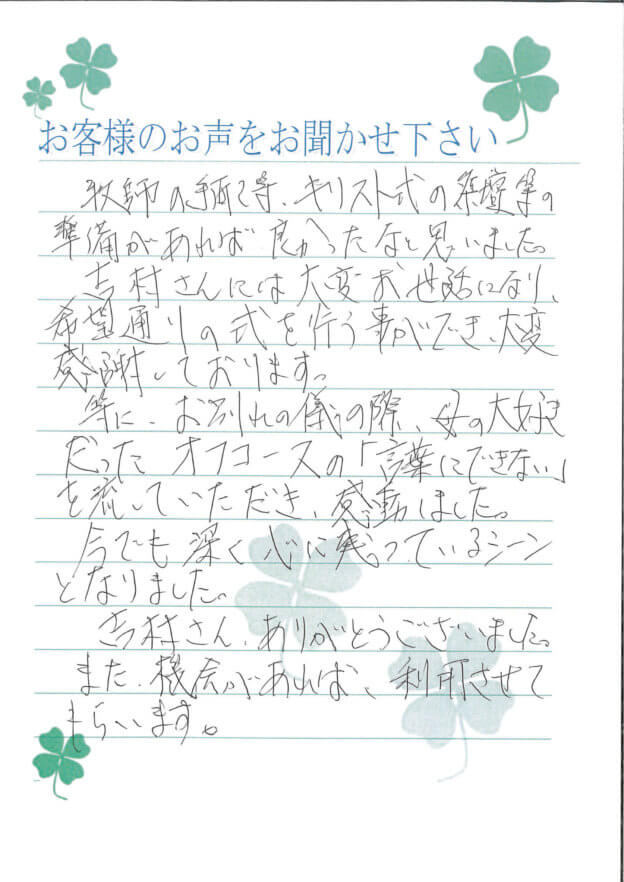 お客様のお声をお聞かせ下さい
牧師の手配等、キリスト式の祭壇等の
準備があれば良かったなと思いました。
吉村さんには大変お世話になり、
希望通りの式を行う事ができ、大変
感謝しております。
特に、お別れの儀の際、母の大好き
だったオフコースの「言葉にできない」
を流していただき、感動しました。
今でも深く心に残っているシーン
となりました。
吉村さん、ありがとうございました。
また、機会があれば、利用させて
もらいます。